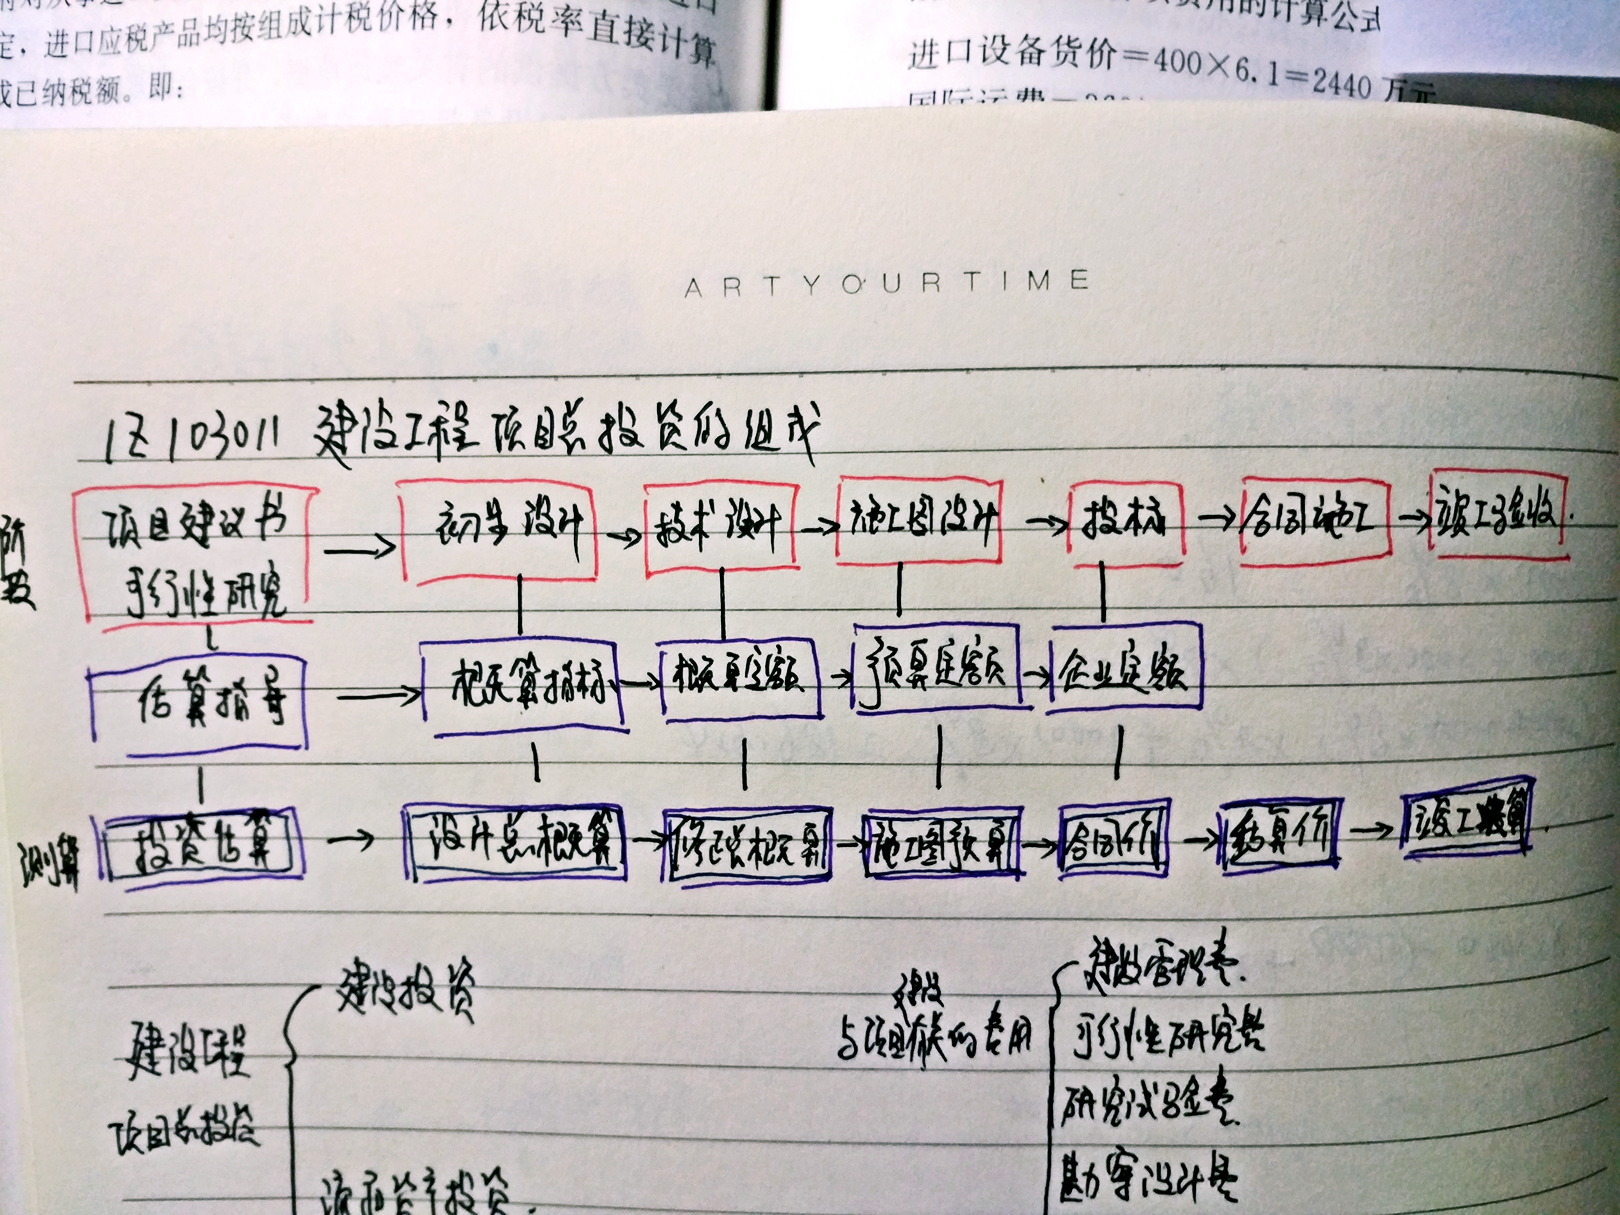 定，进口应税产品均按组成计税价格，依税率直接计算
成已纳税额。即：
用的计算公式
进口设备货价＝400×6.1＝2440 万元
国际运费＝
ARTYOURTIME
1Z103011 建设工程项目总投资的组成
阶段
项目建议书
可行性研究
初步设计
技术设计
施工图设计
投标
合同施工
竣工验收.
估算指导
概算指标
概算定额
预算定额
企业定额
测算
投资估算
设计总概算
修正总概算
施工图预算
合同价
结算价
竣工决算.
建设工程
项目总投资
建设投资
流动资产投资.
建设
与项目有关的费用
建设管理费.
可行性研究费
研究试验费.
勘察设计费